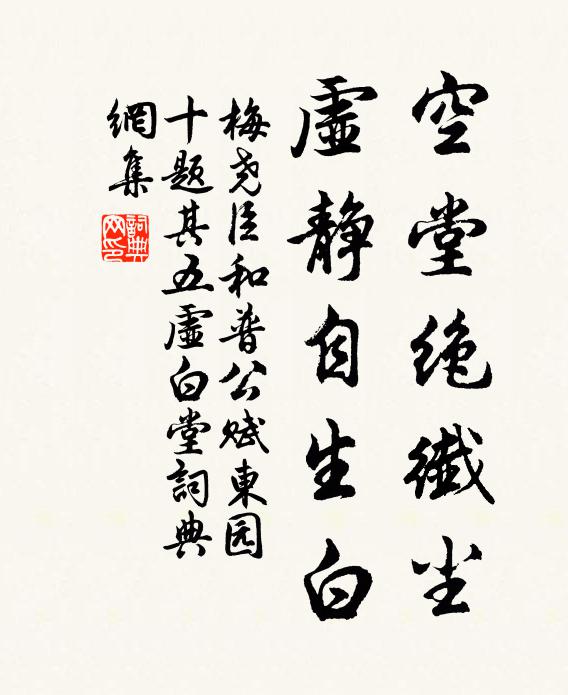 空堂绝纖尘
虛靜自生白
梅尧臣和普公赋東园
十题其五虛白堂詞典
網集
詞典網印